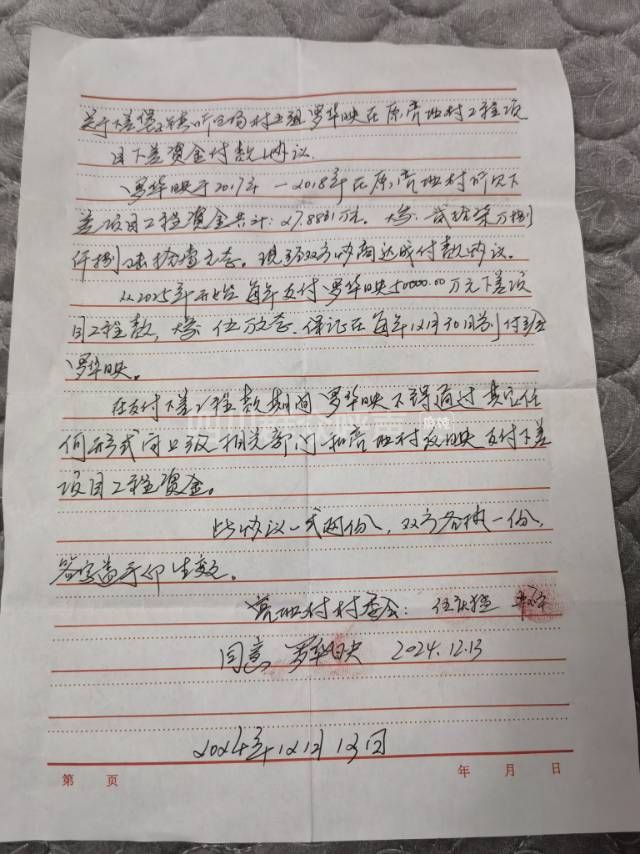 关于下差堡镇听包局村五组罗华映在原营地村工程项
目下差资金付款协议.
罗华映于2017年-2018年在原营地村所以下
差项目工程资金共计:27.8831万元。大写:贰拾柒万捌
仟捌 叁拾壹元整。现经双方协商达成付款协议。
从2025年开始每年支付罗华映50000.00万元下差项
目工程款,大写:伍万元整.保证在每年12月30日前付给
罗华映。
在支付下差工程款期间罗华映不得通过其它任
何形式向上级相关部门和营地村反映支付下差
项目工程资金。
此协议一式两份,双方各执一份,
签字盖手印生效。
营地村村委会:
同意 罗华映 2024.12.13
2024年12月13日
第 页 年 月 日